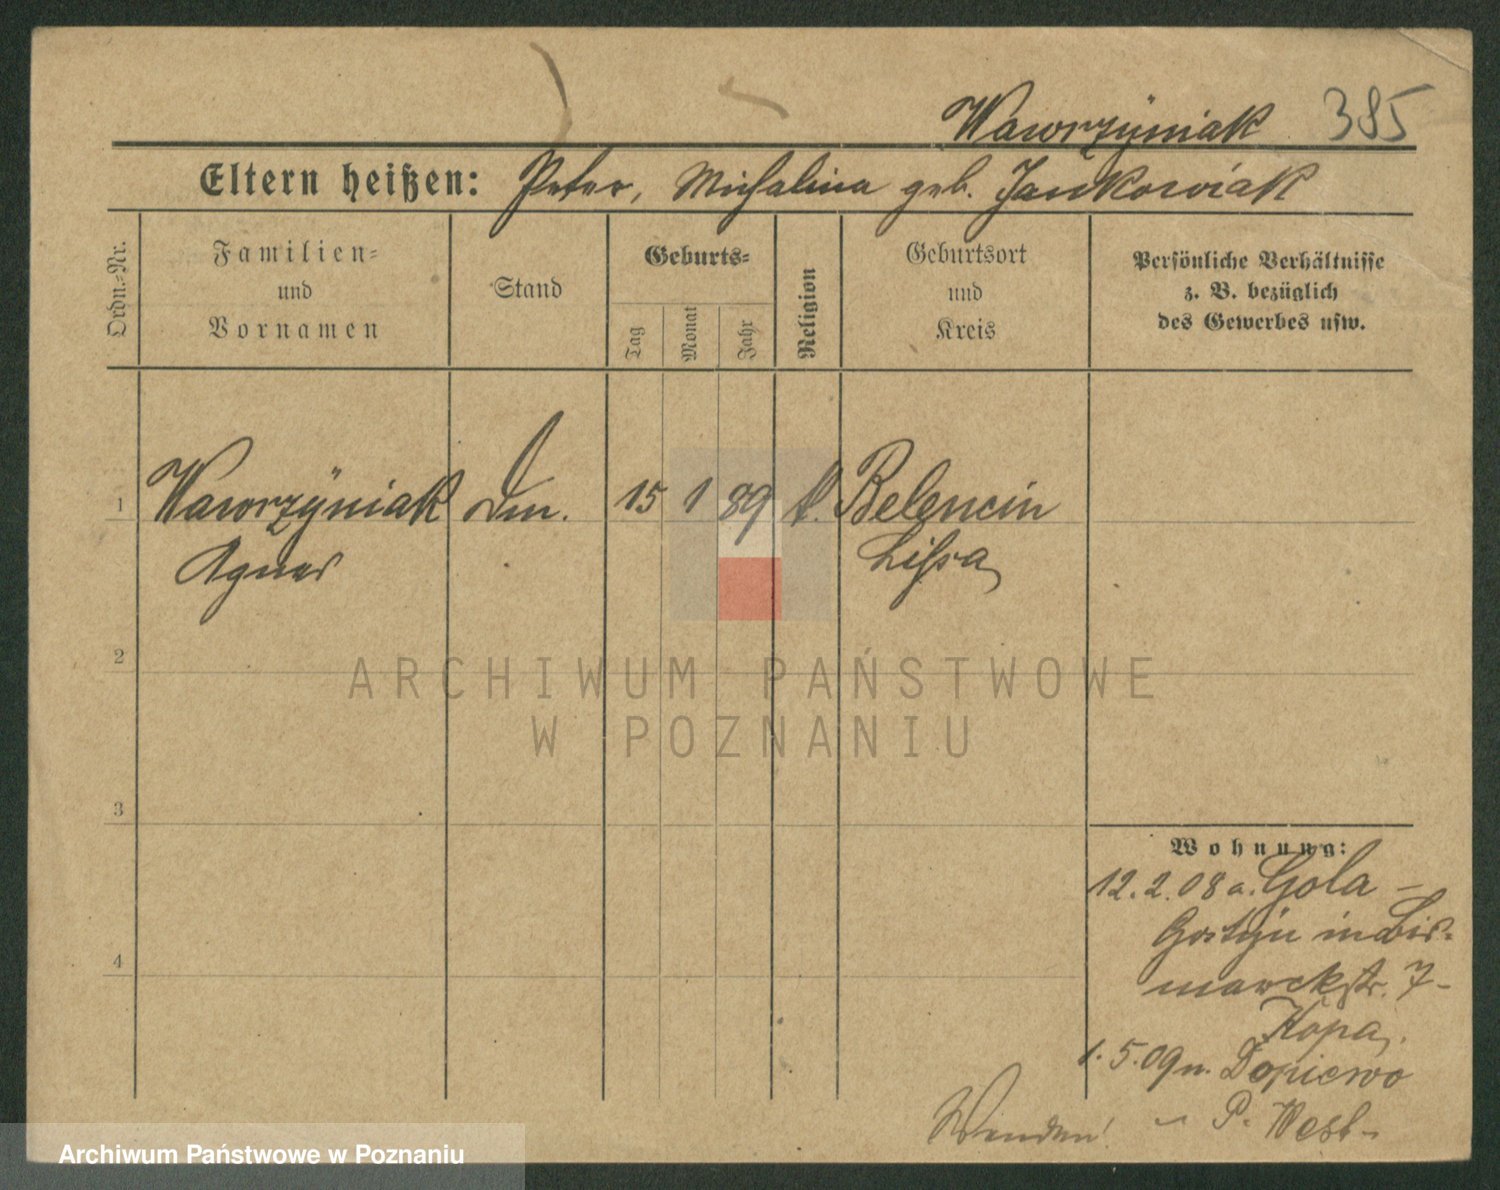 Wawrzÿniak 385
Eltern heißen: Peter, Michalina geb. Jankowiak
Ordn.-Nr.
Familien-
und
Vornamen
Stand
Geburts-
Tag
Monat
Jahr
Religion
Geburtsort
und
Kreis
Persönliche Verhältnisse
z. B. bezüglich
des Gewerbes usw.
1 Wawrzÿniak Dm. 15 1 89 k. Belencin
Agnes Lissa
2
ARCHIWUM PAŃSTWOWE
W POZNANIU
3
Wohnung:
12.2.08 a. Gola -
Gostÿn in Bis-
marckstr. 7-
Kopa.
4
1.5.09 n. Dopiewo
- P. West-
Wenden!
Archiwum Państwowe w Poznaniu